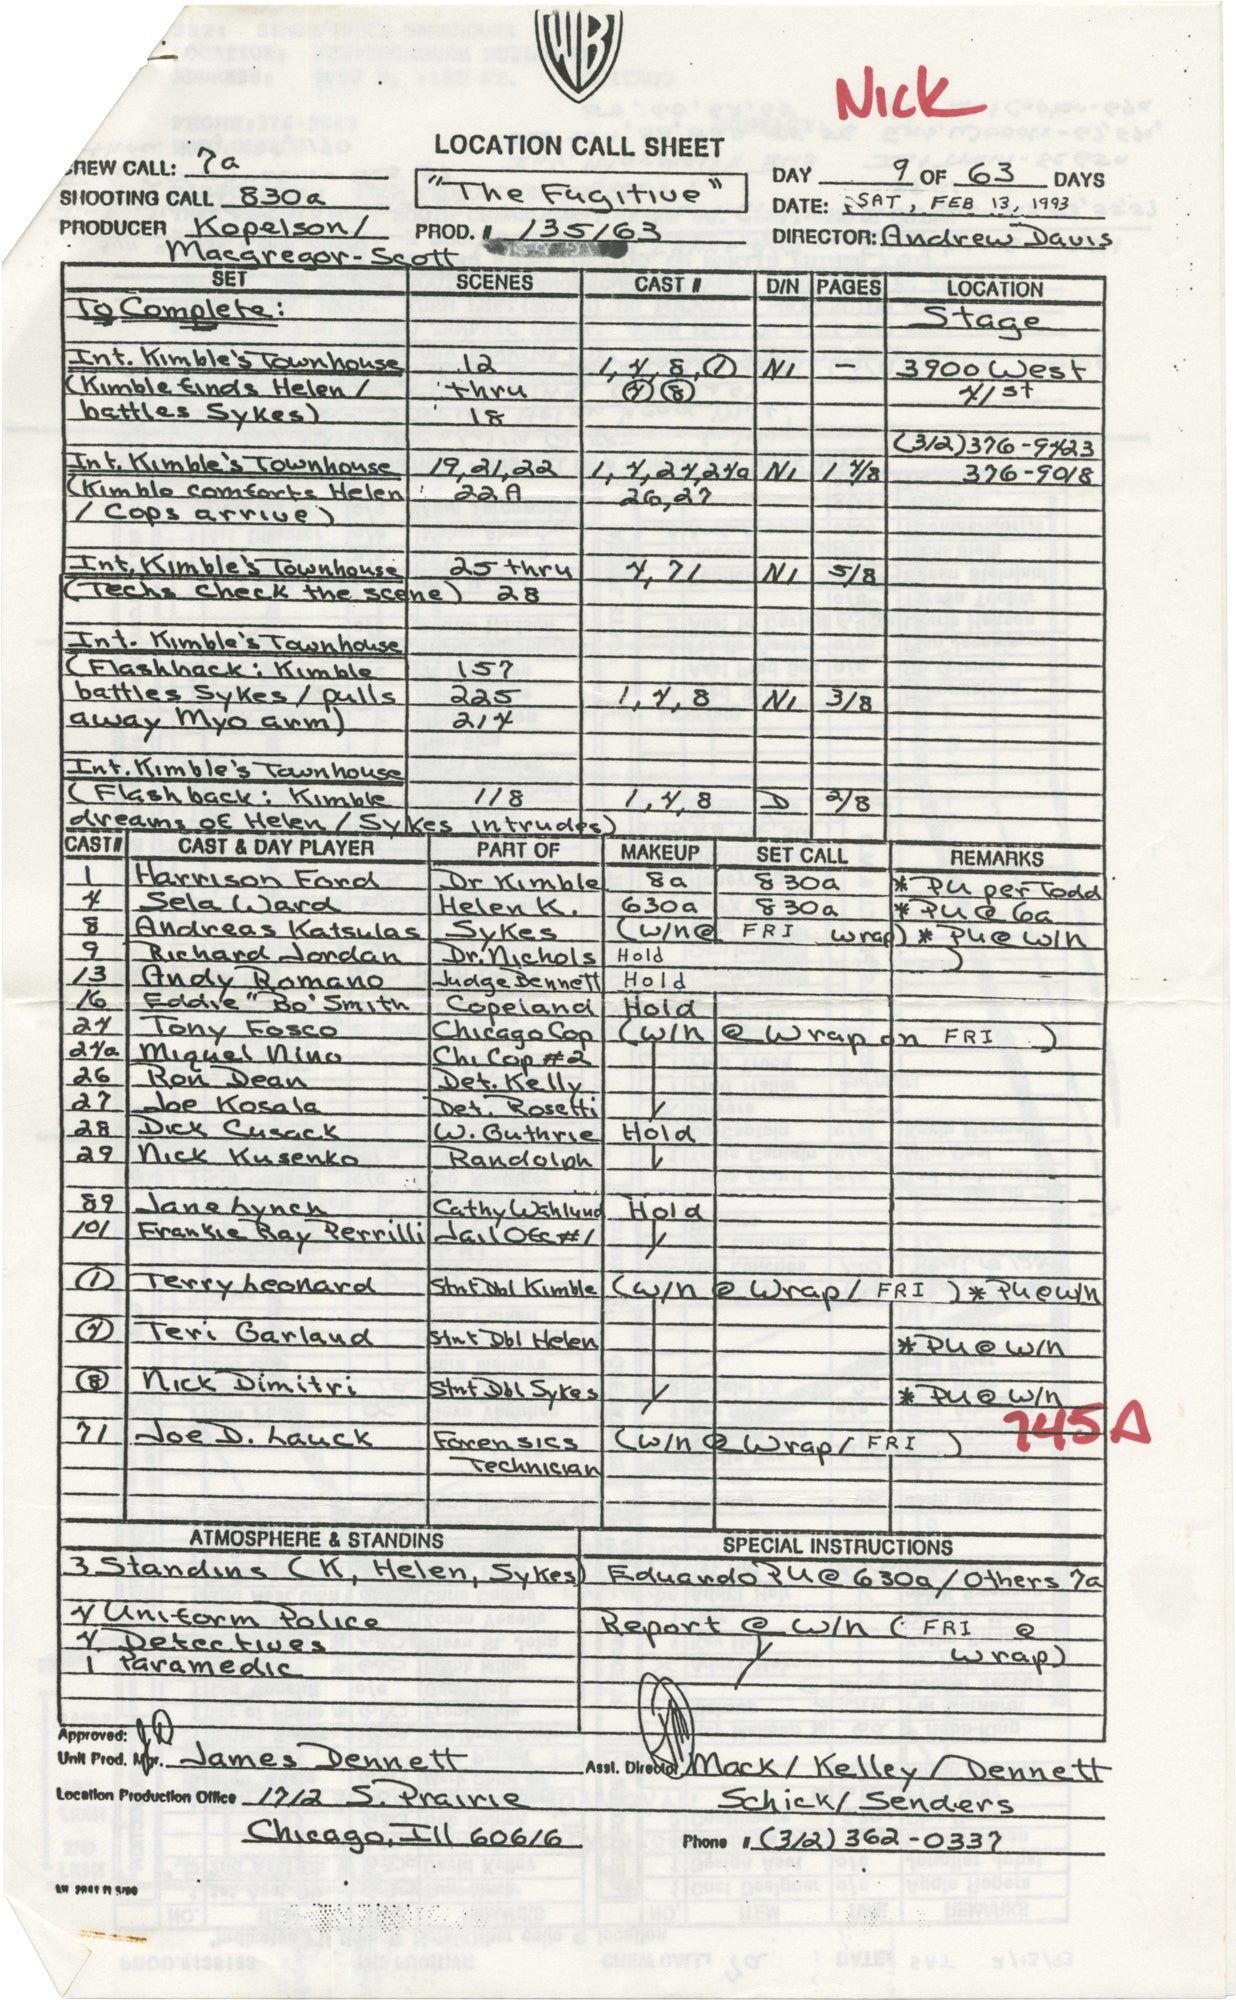 WB
Nick
LOCATION CALL SHEET
CREW CALL: 7a
"The Fugitive"
DAY 9 OF 63 DAYS
SHOOTING CALL 830a
DATE: SAT, FEB 13, 1993
PRODUCER Kopelson/
Macgregor-Scott
PROD. # 135163
DIRECTOR: Andrew Davis
SET SCENES CAST # D/N PAGES LOCATION
To Complete: Stage
Int. Kimble's Townhouse 12 1, 4, 8, (1) Ni - 3900 West
(Kimble finds Helen / thru (4) (8) 41st
battles Sykes) 18
(312) 376-9423
Int. Kimble's Townhouse 19, 21, 22 1, 4, 24, 24a Ni 1 4/8 376-9018
(Kimble comforts Helen 22A 26, 27
/ Cops arrive)
Int. Kimble's Townhouse 25 thru 4, 71 Ni 5/8
(Techs check the scene) 28
Int. Kimble's Townhouse
(Flashback: Kimble 157
battles Sykes / pulls 225 1, 4, 8 Ni 3/8
away Myo arm) 214
Int. Kimble's Townhouse
(Flashback: Kimble 118 1, 4, 8 D 2/8
dreams of Helen / Sykes intrudes)
CAST# CAST & DAY PLAYER PART OF MAKEUP SET CALL REMARKS
1 Harrison Ford Dr Kimble 8a 830a * PU per Todd
4 Sela Ward Helen K. 630a 830a * PU @ 6a
8 Andreas Katsulas Sykes (w/n @ FRI wrap) * PU @ W/N
9 Richard Jordan Dr. Nichols Hold )
13 Andy Romano Judge Bennett Hold
16 Eddie "Bo" Smith Copeland Hold
24 Tony Fosco Chicago Cop (w/n @ Wrap on FRI )
24a Miguel Nino Chi Cop #2
26 Ron Dean Det. Kelly
27 Joe Kosala Det. Rosetti
28 Dick Cusack W. Guthrie Hold
29 Nick Kusenko Randolph
89 Jane Lynch Cathy Wahlund Hold
101 Frankie Ray Perrilli Jail Ofc #1
(1) Terry Leonard Stnt Dbl Kimble (w/n @ Wrap / FRI ) * PU @ W/N
(4) Teri Garland Stnt Dbl Helen * PU @ W/N
(8) Nick Dimitri Stnt Dbl Sykes * PU @ W/N
745A
71 Joe D. Lauck Forensics (w/n @ Wrap / FRI )
Technician
ATMOSPHERE & STANDINS SPECIAL INSTRUCTIONS
3 Standins (K, Helen, Sykes) Eduardo PU @ 630a / Others 7a
4 Uniform Police Report @ W/N (FRI @
4 Detectives wrap)
1 Paramedic
Approved:
Unit Prod. Mgr. James Dennett Asst. Director Mack / Kelley / Dennett
Location Production Office 1712 S Prairie Schick / Senders
Chicago, Ill 60616 Phone # (312) 362-0337